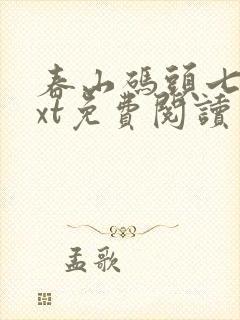 春山碼頭七
xt免費閱讀
孟歌